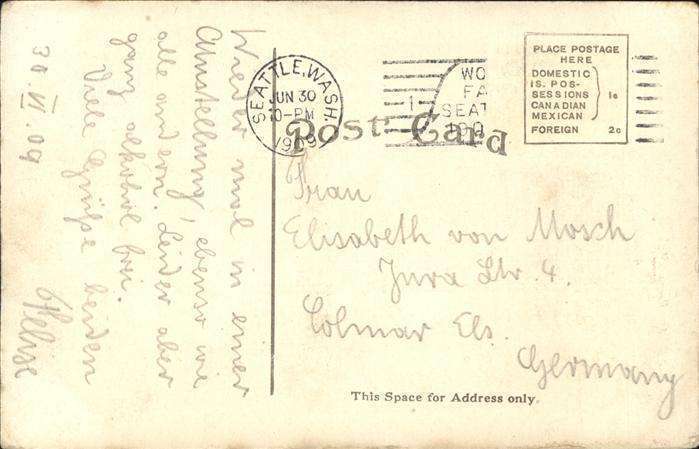 Wieder mal in einer
Ausstellung, ebenso wie
alle andern. Leider aber
ganz alkohol frei.
Viele Grüße beiden
30 VI 09
SEATTLE, WASH.
JUN 30
10-PM
1909
1
WO
FA
SEAT
190
PLACE POSTAGE
HERE
DOMESTIC
IS. POS-
SESSIONS
CANADIAN
MEXICAN
1c
FOREIGN 2c
Post Card
Frau
Elisabeth von Mosch
Jura Str. 4.
Colmar Els.
Germany
This Space for Address only.